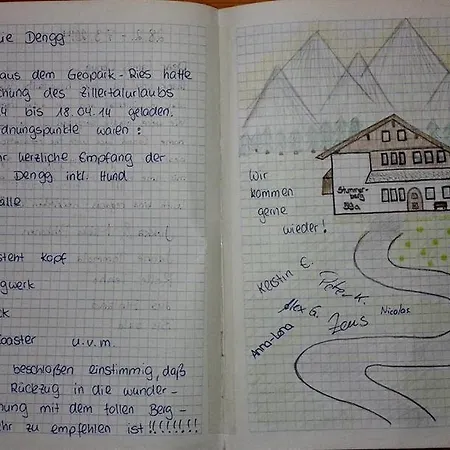 ie Dengg
aus dem Geopark-Ries hatte
chung des Zillertalurlaubs
4 bis 18.04.14 geladen.
dnungspunkte waren:
hr herzliche Empfang der
Dengg inkl. Hund
alle
steht Kopf
gwerk
ck
oaster u.v.m.
beschloßen einstimmig, daß
Rückzug in die wunder-
nung mit dem tollen Berg-
ehr zu empfehlen ist!!!!!!!
Wir
kommen
gerne
wieder!
Stummer-
berg
59a
Kerstin E.
Peter K.
Alex G.
Zeus
Nicolas
Anna-Lena